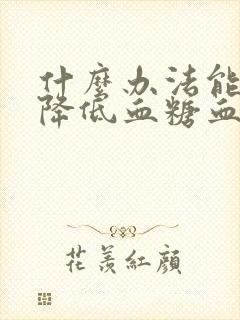 什麽办法能
降低血糖血
花羡紅顔